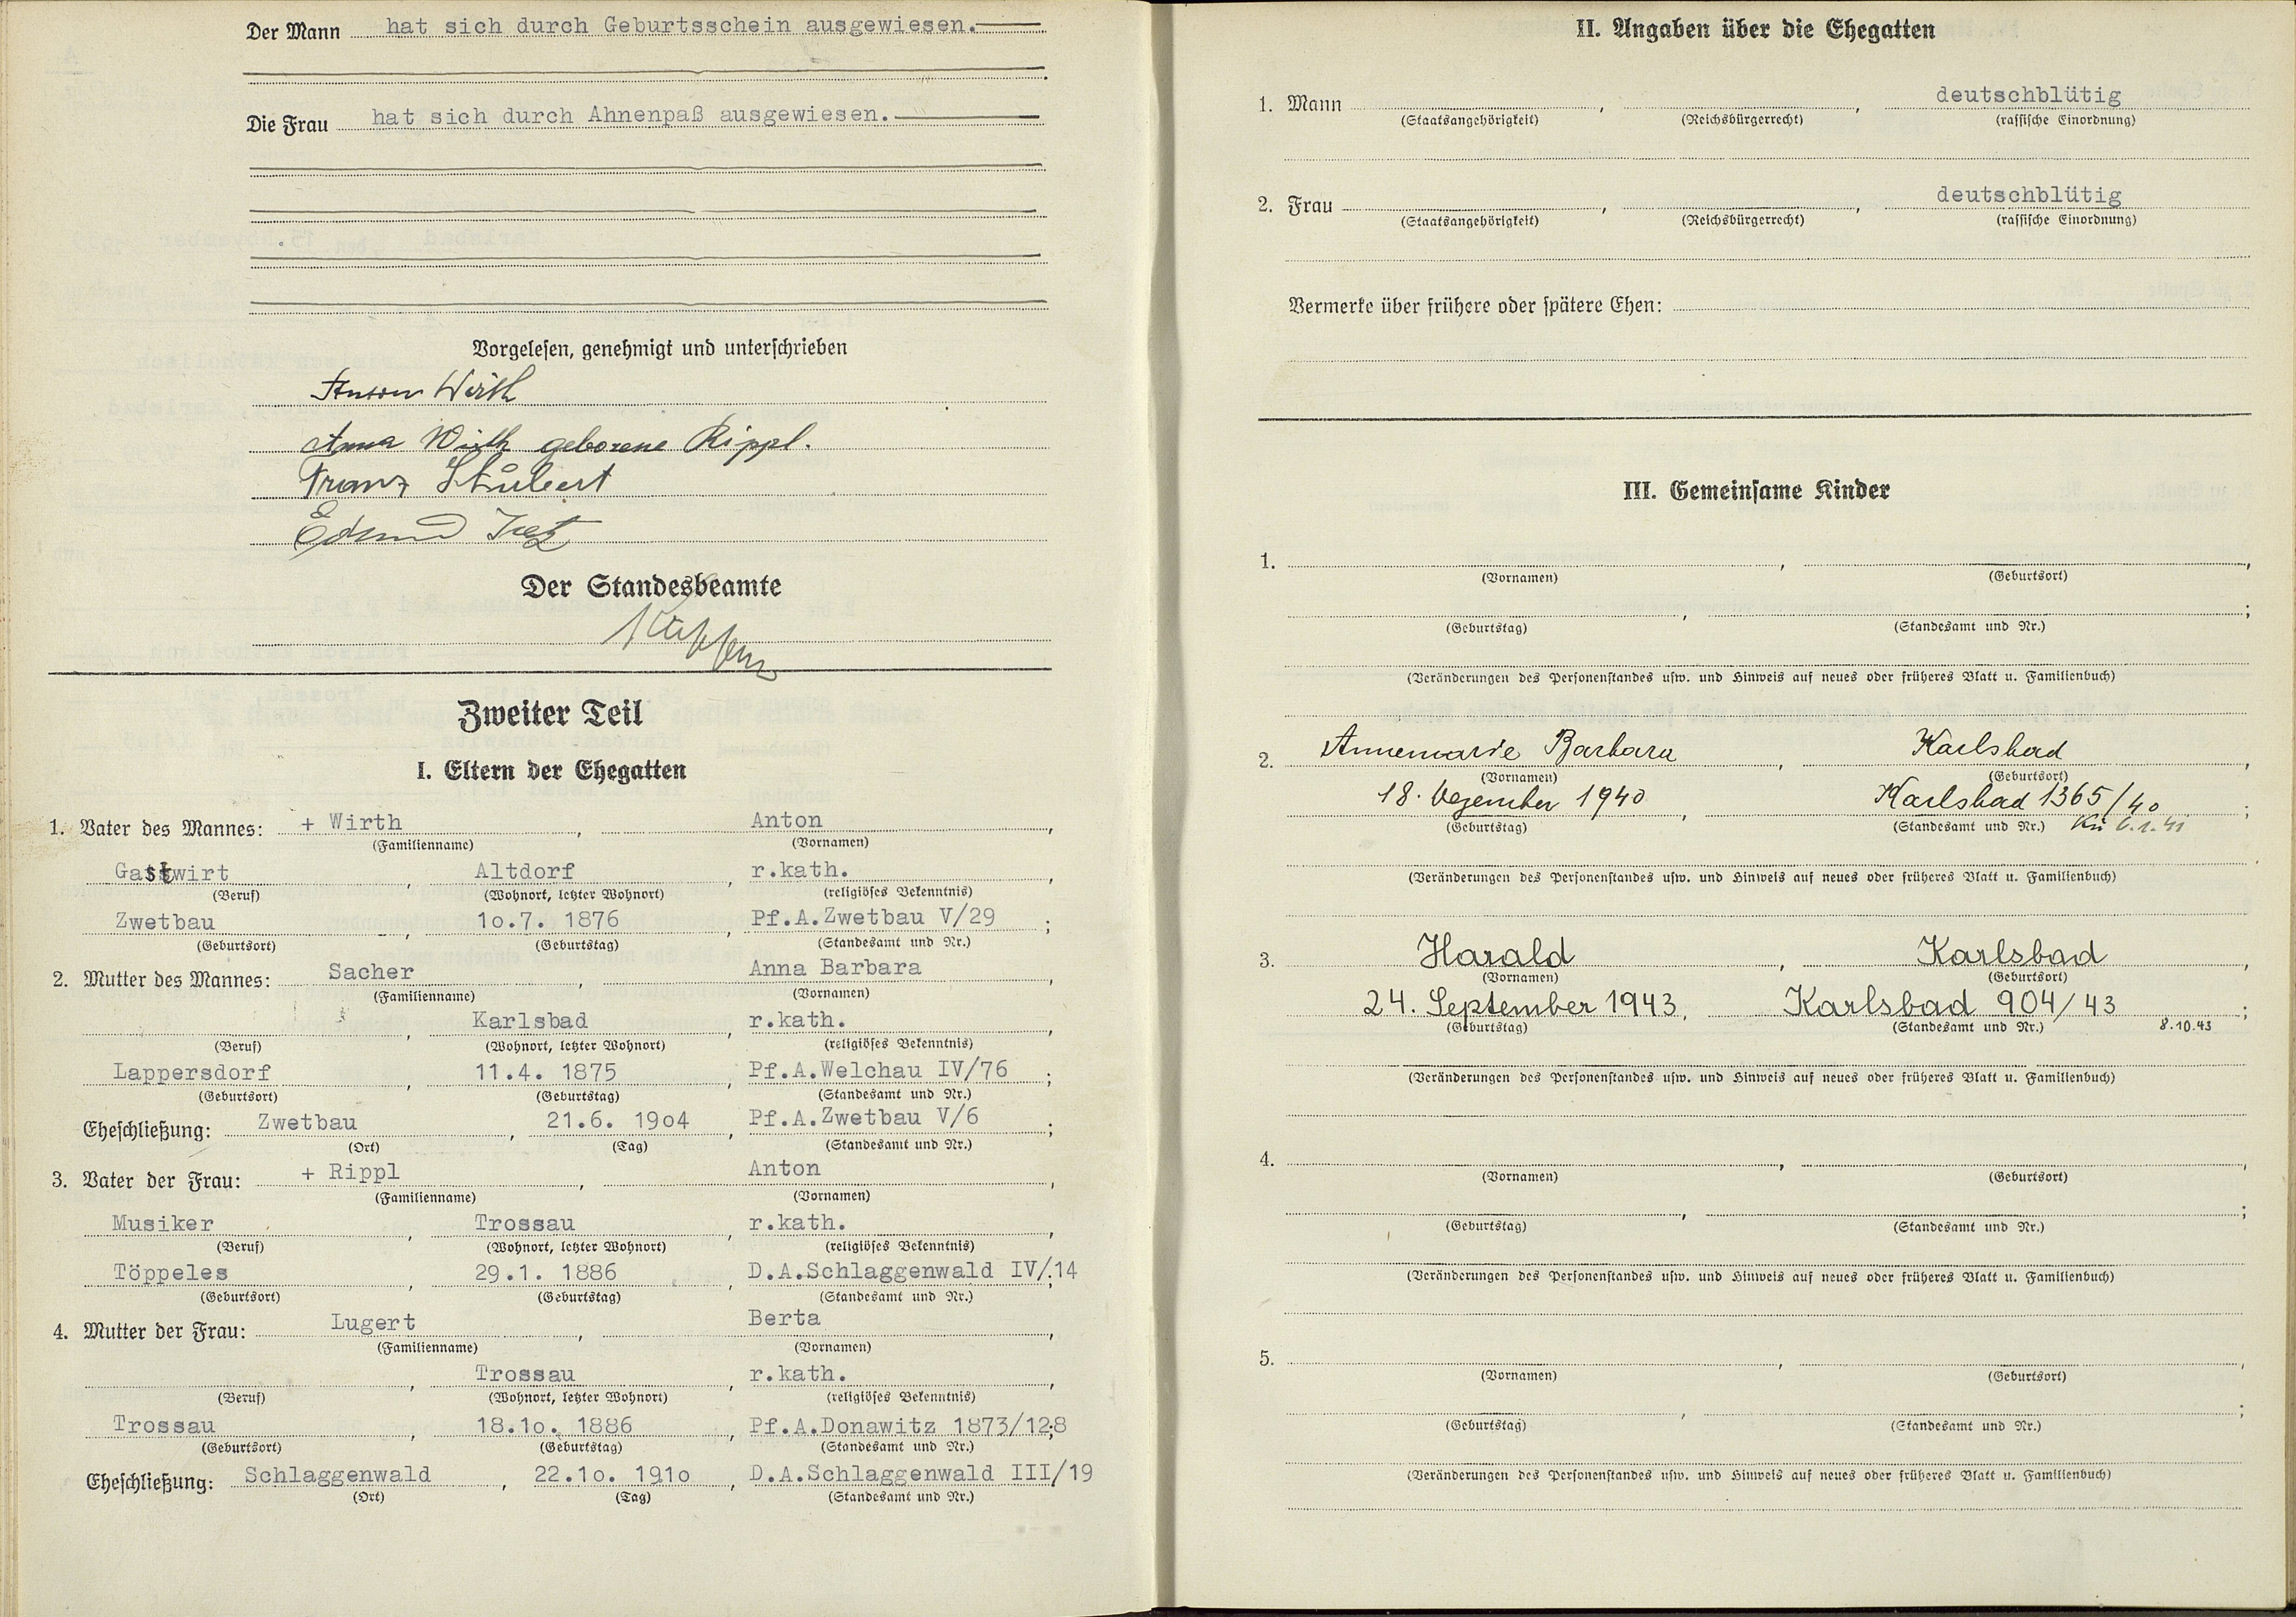 Der Mann hat sich durch Geburtsschein ausgewiesen.
Die Frau hat sich durch Ahnenpaß ausgewiesen.
Vorgelesen, genehmigt und unterschrieben
Anton Wirth
Anna Wirth geborene Rippl.
Franz
Edmund
Der Standesbeamte
Zweiter Teil
I. Eltern der Ehegatten
1. Vater des Mannes: + Wirth, Anton,
(Familienname) (Vornamen)
Gastwirt, Altdorf, r.kath.,
(Beruf) (Wohnort, letzter Wohnort) (religiöses Bekenntnis)
Zwetbau, 1o.7. 1876, Pf.A.Zwetbau V/29;
(Geburtsort) (Geburtstag) (Standesamt und Nr.)
2. Mutter des Mannes: Sacher, Anna Barbara,
(Familienname) (Vornamen)
, Karlsbad, r.kath.,
(Beruf) (Wohnort, letzter Wohnort) (religiöses Bekenntnis)
Lappersdorf, 11.4. 1875, Pf.A.Welchau IV/76;
(Geburtsort) (Geburtstag) (Standesamt und Nr.)
Eheschließung: Zwetbau, 21.6. 19o4, Pf.A.Zwetbau V/6;
(Ort) (Tag) (Standesamt und Nr.)
3. Vater der Frau: + Rippl, Anton,
(Familienname) (Vornamen)
Musiker, Trossau, r.kath.,
(Beruf) (Wohnort, letzter Wohnort) (religiöses Bekenntnis)
Töppeles, 29.1. 1886, D.A.Schlaggenwald IV/14;
(Geburtsort) (Geburtstag) (Standesamt und Nr.)
4. Mutter der Frau: Lugert, Berta,
(Familienname) (Vornamen)
, Trossau, r.kath.,
(Beruf) (Wohnort, letzter Wohnort) (religiöses Bekenntnis)
Trossau, 18.1o. 1886, Pf.A.Donawitz 1873/128;
(Geburtsort) (Geburtstag) (Standesamt und Nr.)
Eheschließung: Schlaggenwald, 22.1o. 191o, D.A.Schlaggenwald III/19
(Ort) (Tag) (Standesamt und Nr.)
II. Angaben über die Ehegatten
1. Mann , , deutschblütig
(Staatsangehörigkeit) (Reichsbürgerrecht) (rassische Einordnung)
2. Frau , , deutschblütig
(Staatsangehörigkeit) (Reichsbürgerrecht) (rassische Einordnung)
Vermerke über frühere oder spätere Ehen:
III. Gemeinsame Kinder
1. , ,
(Vornamen) (Geburtsort)
, ;
(Geburtstag) (Standesamt und Nr.)
(Veränderungen des Personenstandes usw. und Hinweis auf neues oder früheres Blatt u. Familienbuch)
2. Annemarie Barbara, Karlsbad,
(Vornamen) (Geburtsort)
18. Dezember 1940, Karlsbad 1365/40;
(Geburtstag) (Standesamt und Nr.)
(Veränderungen des Personenstandes usw. und Hinweis auf neues oder früheres Blatt u. Familienbuch)
3. Harald, Karlsbad,
(Vornamen) (Geburtsort)
24. September 1943, Karlsbad 904/43;
(Geburtstag) (Standesamt und Nr.) 8.10.43
(Veränderungen des Personenstandes usw. und Hinweis auf neues oder früheres Blatt u. Familienbuch)
4. , ,
(Vornamen) (Geburtsort)
, ;
(Geburtstag) (Standesamt und Nr.)
(Veränderungen des Personenstandes usw. und Hinweis auf neues oder früheres Blatt u. Familienbuch)
5. , ,
(Vornamen) (Geburtsort)
, ;
(Geburtstag) (Standesamt und Nr.)
(Veränderungen des Personenstandes usw. und Hinweis auf neues oder früheres Blatt u. Familienbuch)